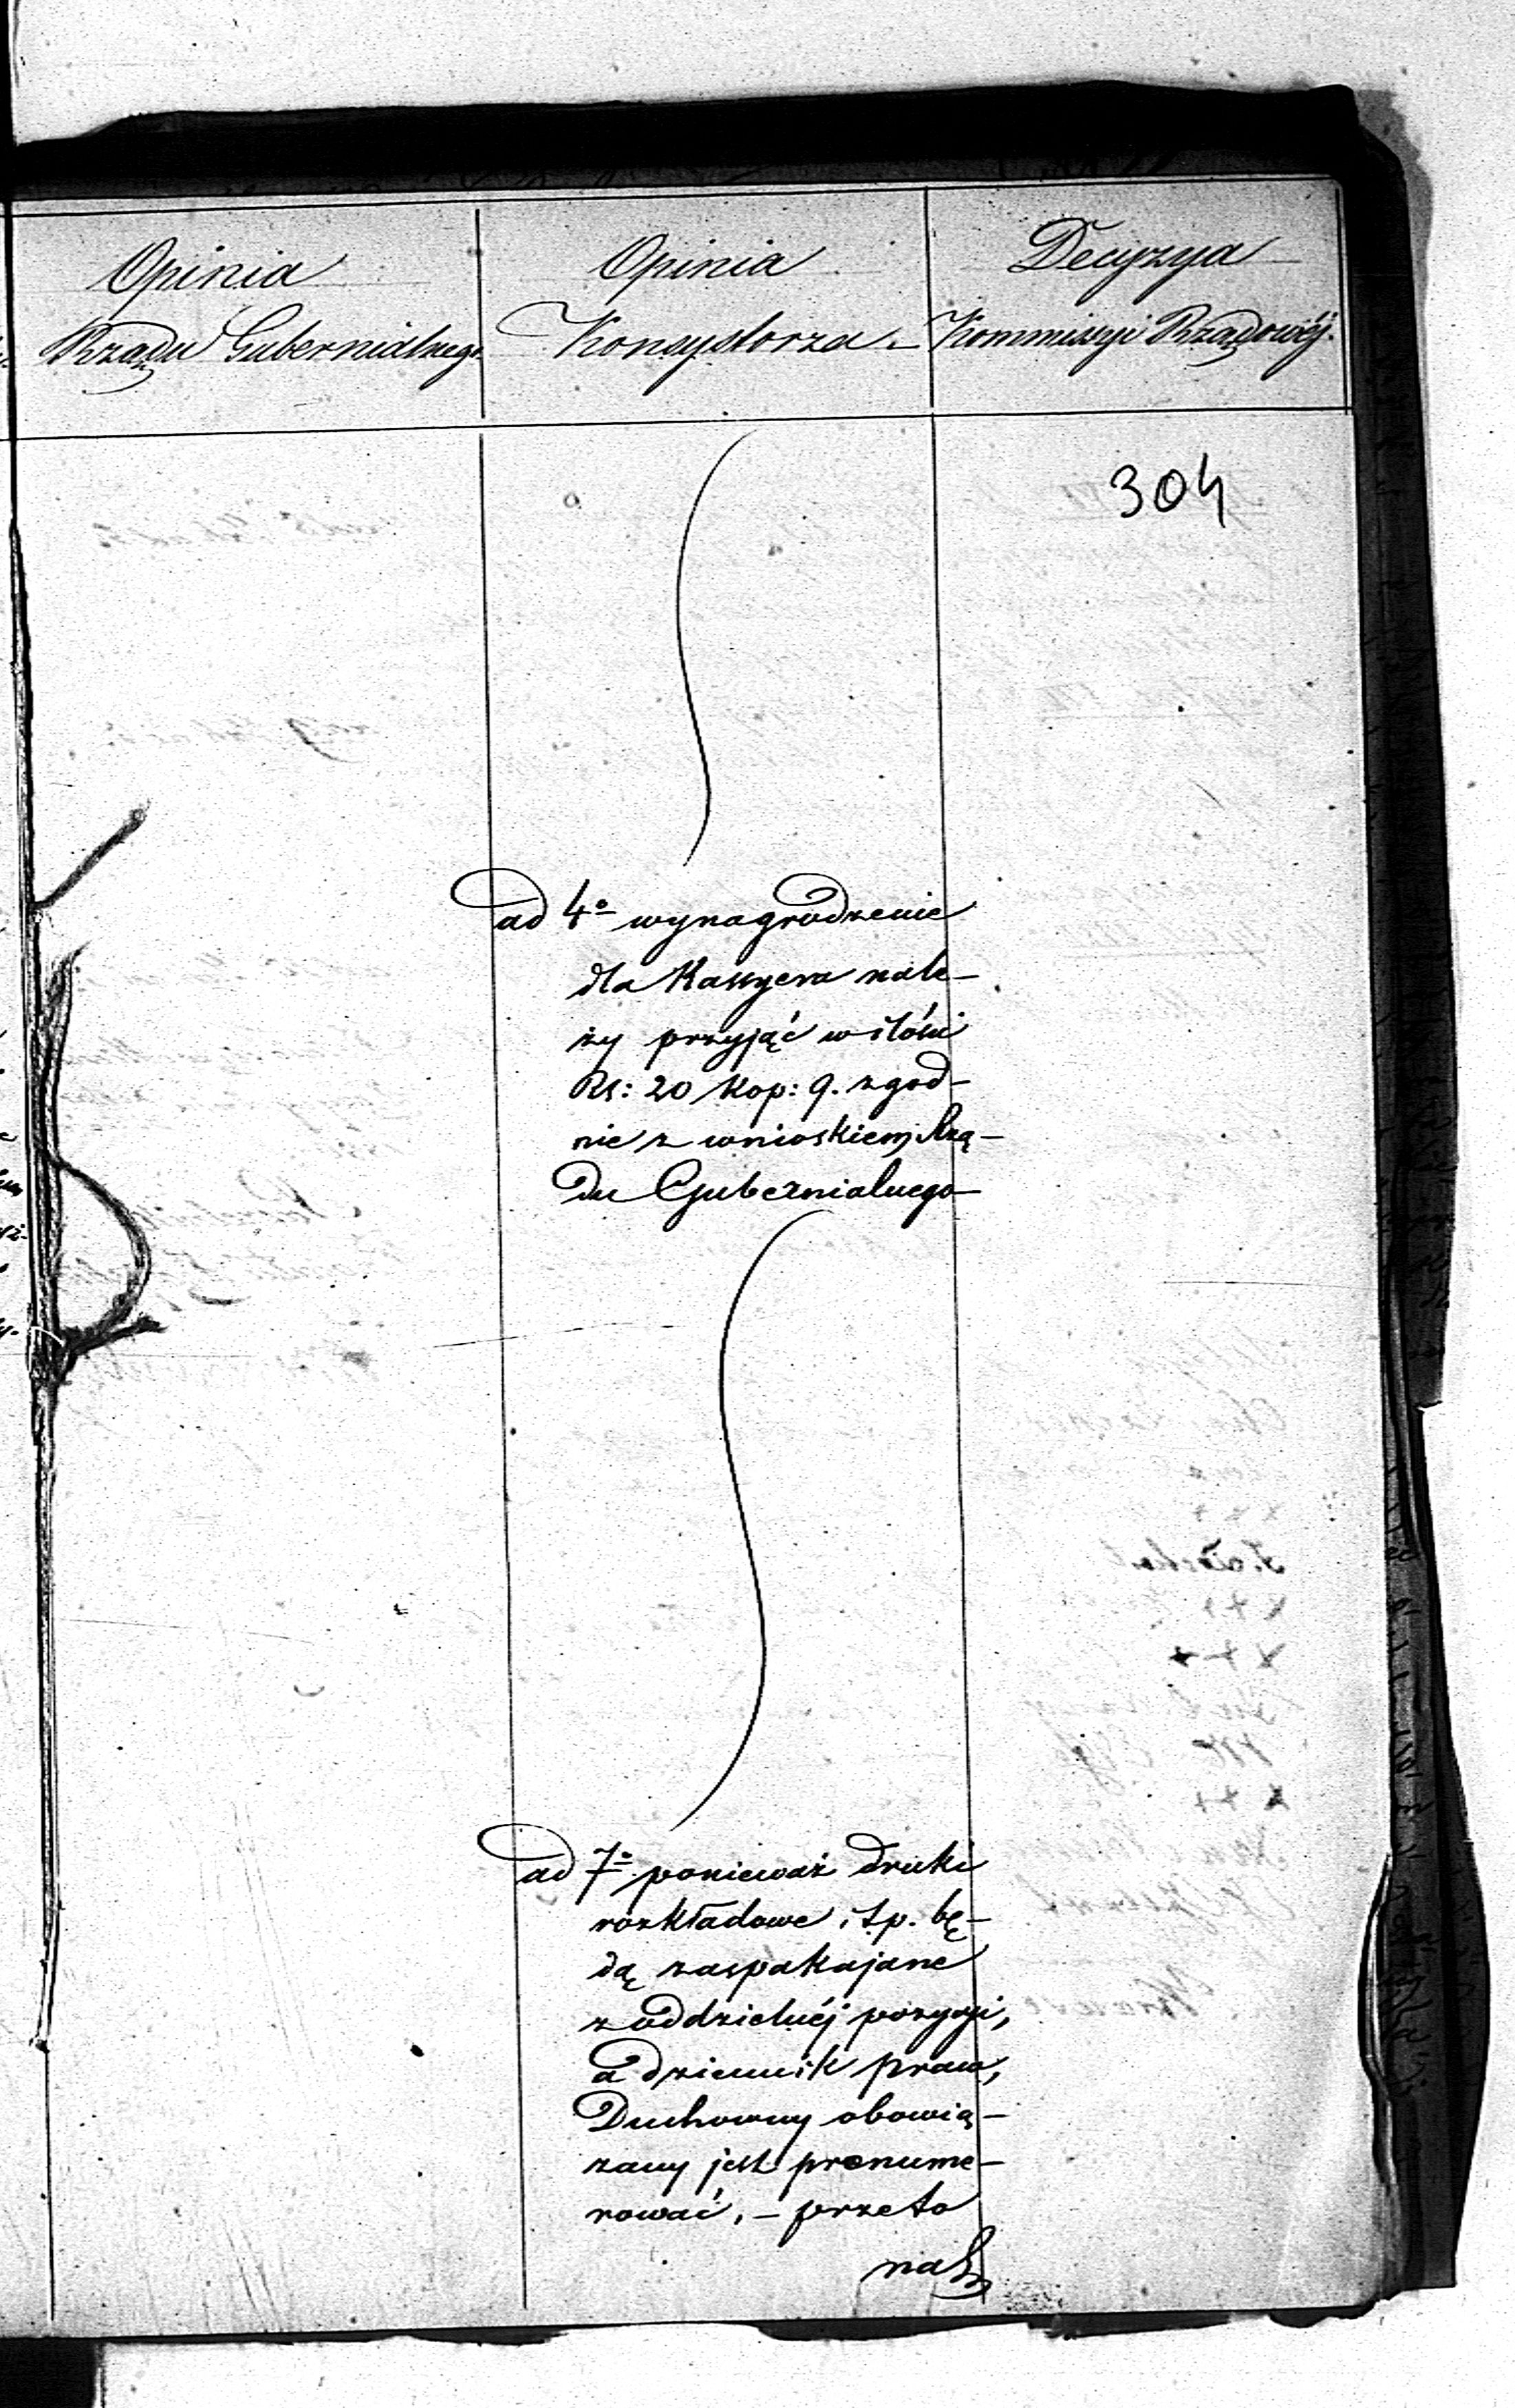 Opinia
Rządu Gubernialnego
Opinia
Konsystorza
Decyzya
Kommissyi Rządowéj.
304
ad 4o wynagrodzenie
dla Kassyera nale-
ży przyjąć w ilości
Rs: 20 kop: 9. zgod-
nie z wnioskiem Rzą-
du Gubernialnego
ad 7o ponieważ druki
rozkładowe i t.p. bę-
dą zaspakajane
z oddzielnéj pozycyi,
a dziennik praw,
Duchowny obowią-
zany jest prenume-
rować, - przeto
na